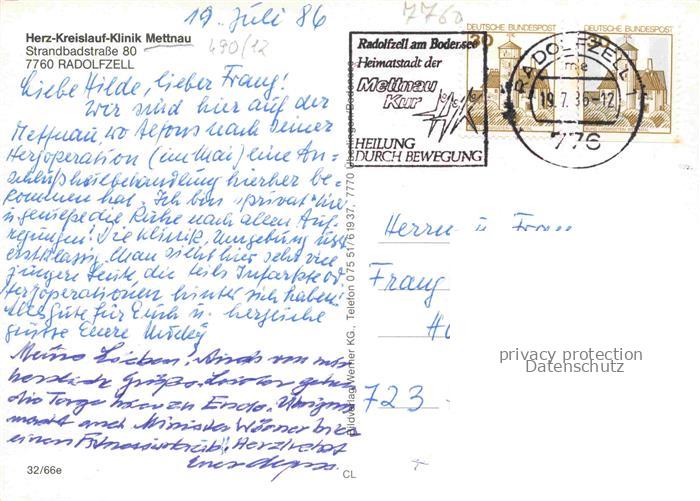 19. Juli 86
7760
Herz-Kreislauf-Klinik Mettnau
Strandbadstraße 80
490/12
7760 RADOLFZELL
Liebe Hilde, lieber Franz!
Wir sind hier auf der
Mettnau, wo Alfons nach seiner
Herzoperation (im Mai) eine An-
schlußheilbehandlung hierher be-
kommen hat. Ich bin "privat" hier
u. genieße die Ruhe nach allen Auf-
regungen! Die Klinik, Umgebung usw.
erstklassig. Man sieht hier sehr viel
jüngere Leute die teils Infarkte od.
Herzoperationen hinter sich haben!
Alles Gute für Euch u. herzliche
Grüsse Euere
Meine Lieben! Auch von mir
herzliche Grüße. Leider gehen
die Tage hier zu Ende. Übrigens
macht auch Minister Wörner hier
einen Fitnessurlaub!. Herzlichst
Euer
32/66e
CL
Bildverlag Werner KG., Telefon 07551/61937, 7770 Überlingen-Bodensee
Radolfzell am Bodensee
Heimatstadt der
Mettnau
Kur
HEILUNG
DURCH BEWEGUNG
DEUTSCHE BUNDESPOST
30
DEUTSCHE BUNDESPOST
30
RADOLFZELL 1
me
19.7.86-12
776
Herrn u Frau
Franz
723
privacy protection
Datenschutz